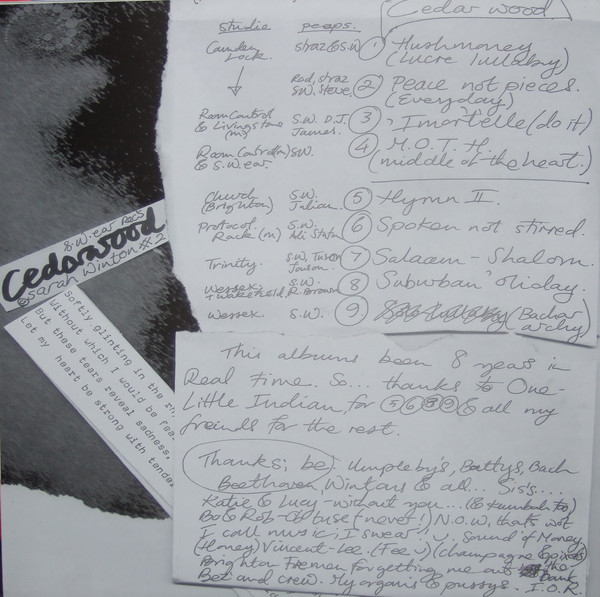 Cedar wood
studio peeps.
Camden Lock. straz & S.W. 1 Hushmoney
(Lucre lullaby)
Rad, straz S.W. Steve 2 Peace not pieces.
(Everyday)
Room Control & Livingstone (m) S.W. D.J. James. 3 Imortelle (do it)
Room Control (m) & S.W. ear. S.W. 4 M.O.T.H.
(middle of the heart.)
Church (Brighton) S.W. Julian. 5 Hymn II.
Protocol Rack (m) S.W. 6 Spoken not stirred.
Trinity. S.W. 7 Salaam - Shalom.
Wessex + Wakefield, S.W. R. Brown 8 Suburban 'oliday.
Wessex S.W. 9 (Bachar
archy)
S.W. ear Recs
Cedarwood
© Sarah Winton xx2
Softly glinting in the
Without which I would be
But these tears reveal sadness,
Let my heart be strong with
This albums been 8 years in
Real time. So... thanks to One-
Little Indian, for 5 6 8 9 & all my
freinds for the rest.
Thanks; be Umpleby's, Battys, Bach
Beethoven, Wintons & all... Sis's....
Katie & Lucy - without you...
Bo & Rob - Obtuse (never!) N.O.W. that's wot
I call music; I swear!! Sound of Money
(Honey) Vincent-Lee. (champagne
Brighton Firemen for getting me out the
Bet and crew. My organs & pussys. bank I.O.R.